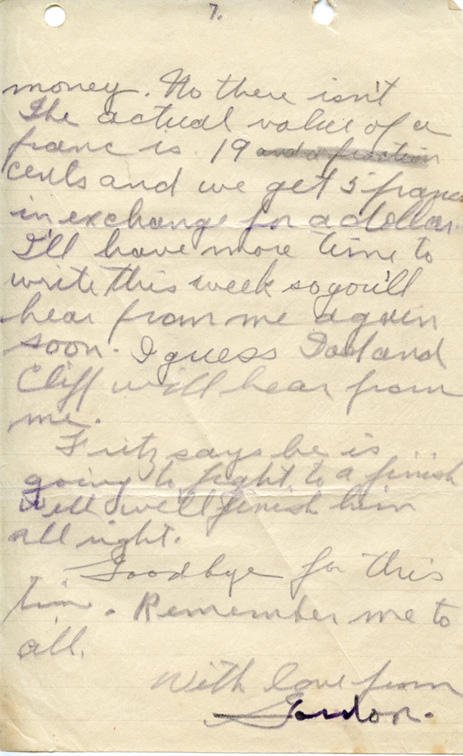 7.
money. No there isn't
The actual value of a
franc is 19 and a fraction
cents and we get 5 francs
in exchange for a dollar.
I'll have more time to
write this week so you'll
hear from me again
soon. I guess Dad and
Cliff will hear from
me.
Fritz says he is
going to fight to a finish
Well we'll finish him
all right.
Goodbye for this
time. Remember me to
all.
With love from
Gordon.